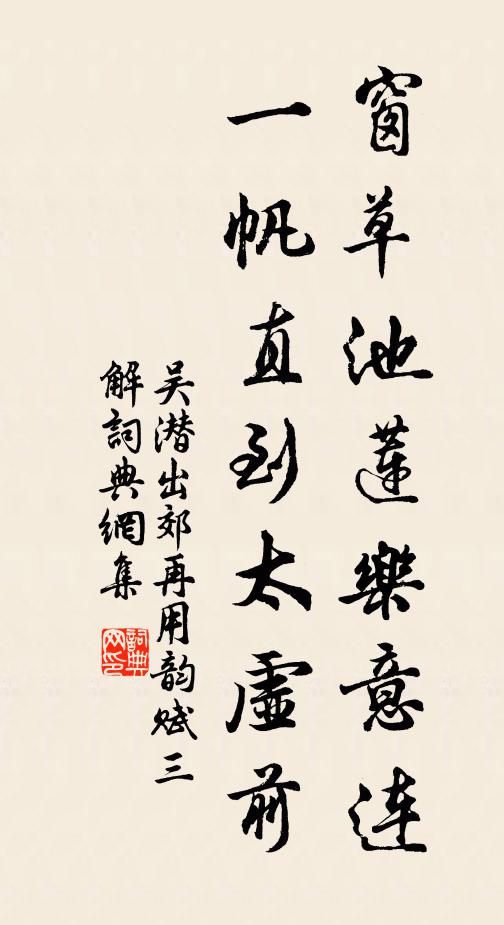 窗草池蓮樂意连
一帆直到太虛前
吴潜出郊再用韵赋三
解詞典網集
詞典网印